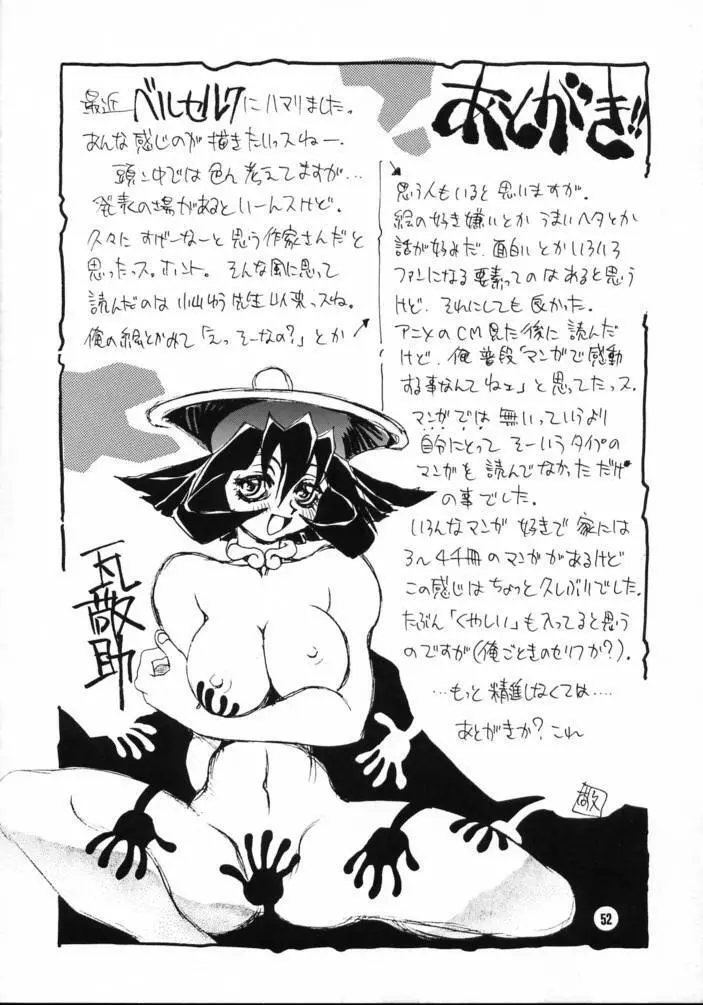 あとがき!!
最近ベルセルクにハマりました。
あんな感じのが描きたいっスねー。
頭ン中では色ん考えてますが…
発表の場があるといーんスけど。
久々にすげーなーと思う作家さんだと
思ったっス。ホント。そんな風に思って
読んだのは小山ゆう先生以来っスね。
俺の絵とかみて「えっそーなの?」とか
思う人もいると思いますが。
絵の好き嫌いとかうまいヘタとか
話が好みだ、面白いとかいろいろ
ファンになる要素ってのはあると思う
けど、それにしても良かった。
アニメのCM見た後に読んだ
けど、俺普段「マンガで感動
する事なんてねェ」と思ってたっス。
マンガでは無いっていうより
自分にとってそーいうタイプの
マンガを読んでなかっただけ
の事でした。
いろんなマンガ好きで家には
3〜4千冊のマンガがあるけど
この感じはちょっと久しぶりでした。
たぶん「くやしい」も入ってると思う
のですが(俺ごときのセリフか?)。
…もっと精進しなくては…
あとがきか?これ
瓦敬助
敬
52